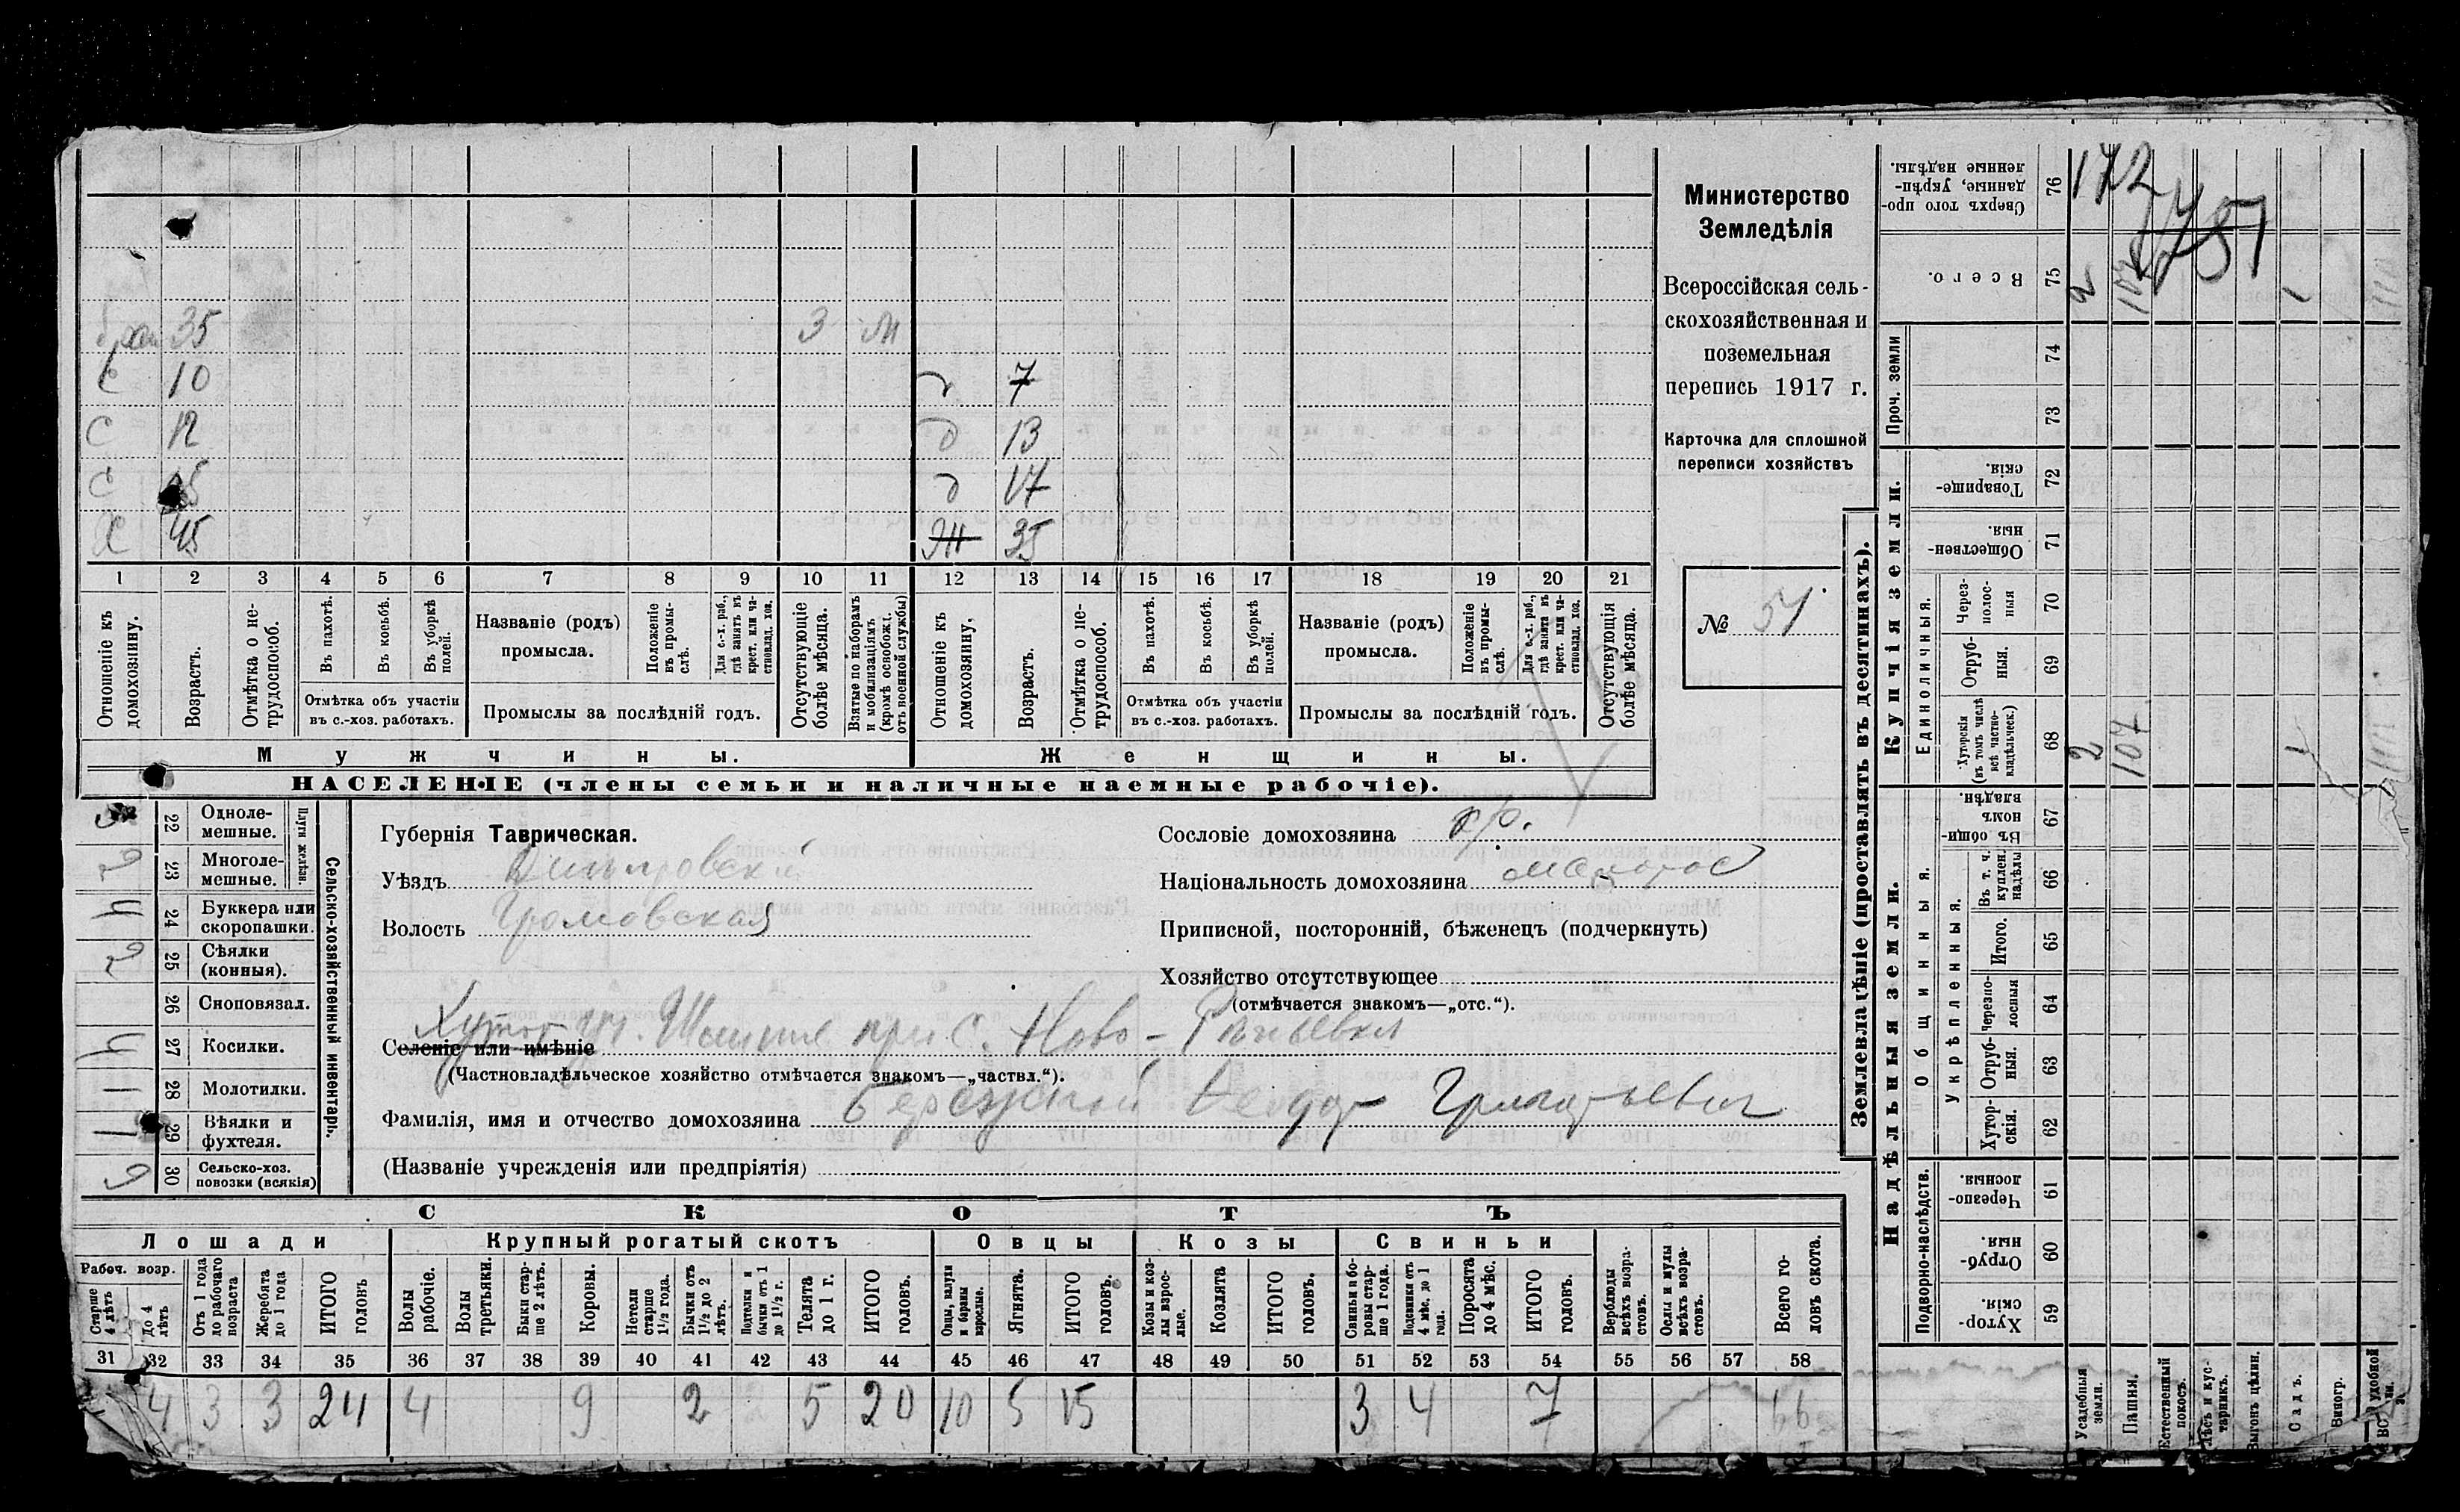 брат 35 3 М
с 10 д 7
с 12 д 13
с д 17
Х 45 Ж 35
1 2 3 4 5 6 7 8 9 10 11 12 13 14 15 16 17 18 19 20 21
Отношеніе къ домохозяину.
Возрастъ.
Отмѣтка о нетрудоспособ.
Въ пахотѣ.
Въ косьбѣ.
Въ уборкѣ полей.
Отмѣтка объ участіи въ с.-хоз. работахъ.
Названіе (родъ) промысла.
Положеніе въ промыслѣ.
Для с.-х. раб., гдѣ занятъ въ крест. или частновлад. хоз.
Промыслы за послѣдній годъ.
Отсутствующіе болѣе мѣсяца.
Взятые по наборамъ и мобилизаціямъ (кромѣ освобожд. отъ военной службы)
Отношеніе къ домохозяину.
Возрастъ.
Отмѣтка о нетрудоспособ.
Въ пахотѣ.
Въ косьбѣ.
Въ уборкѣ полей.
Отмѣтка объ участіи въ с.-хоз. работахъ.
Названіе (родъ) промысла.
Положеніе въ промыслѣ.
Для с.-х. раб., гдѣ занята въ крест. или частновлад. хоз.
Промыслы за послѣдній годъ.
Отсутствующія болѣе мѣсяца.
Мужчины.
Женщины.
НАСЕЛЕНІЕ (члены семьи и наличные наемные рабочіе).
Министерство
Земледѣлія
Всероссійская сель-
скохозяйственная и
поземельная
перепись 1917 г.
Карточка для сплошной
переписи хозяйствъ
№ 54
22 Однолемешные.
23 Многолемешные. 2
Плуги желѣзн.
24 Буккера или скоропашки. 4
25 Сѣялки (конныя). 2
26 Сноповязал.
27 Косилки. 4
28 Молотилки. 1
29 Вѣялки и фухтеля. 1
30 Сельско-хоз. повозки (всякія)
Сельско-хозяйственный инвентарь.
Губернія Таврическая.
Уѣздъ Днѣпровскій
Волость Громовская
Сословіе домохозяина кр.
Національность домохозяина малорос
Приписной, посторонній, бѣженецъ (подчеркнуть)
Хозяйство отсутствующее
(отмѣчается знакомъ—„отс.“).
Хутор
Селеніе или имѣніе при с. Ново-
(Частновладѣльческое хозяйство отмѣчается знакомъ—„частвл.“).
Фамилія, имя и отчество домохозяина Бережной Григорьевич
(Названіе учрежденія или предпріятія)
СКОТЪ
Лошади Крупный рогатый скотъ Овцы Козы Свиньи
Рабоч. возр.
Старше 4 лѣтъ
До 4 лѣтъ
Отъ 1 года до рабочаго возраста
Жеребята до 1 года
ИТОГО головъ
Волы рабочіе.
Волы третьяки.
Быки старше 2 лѣтъ.
Коровы.
Нетели старше 1½ года.
Бычки отъ 1½ до 2 лѣтъ.
Подтелки и бычки отъ 1 до 1½ г.
Телята до 1 г.
ИТОГО головъ.
Овцы, валухи и бараны взрослые.
Ягнята.
ИТОГО головъ.
Козы и козлы взрослые.
Козлята
ИТОГО головъ.
Свиньи и боровы старше 1 года.
Подсвинки отъ 4 мѣс. до 1 года.
Поросята до 4 мѣс.
ИТОГО головъ.
Верблюды всѣхъ возрастовъ.
Ослы и мулы всѣхъ возрастовъ.
Всего головъ скота.
31 32 33 34 35 36 37 38 39 40 41 42 43 44 45 46 47 48 49 50 51 52 53 54 55 56 57 58
4 3 3 24 4 9 2 5 20 10 5 15 3 4 7 66
Землевладѣніе (проставлять въ десятинахъ).
Купчія земли.
Надѣльныя земли.
76 Сверхъ того проданные, укрѣпленные надѣлы. 172
75 Всего. 2 107 1
Проч. земли
74
73
72 Товарищескія.
71 Общественныя.
Единоличныя.
70 Черезполосныя
69 Отрубныя.
68 Хуторскія (въ томъ числѣ всѣ частновладѣльческ.) 2 107
Общинныя.
67 Въ общинномъ владѣн.
Укрѣпленныя.
66 Въ т. ч. куплен. надѣлы
65 Итого.
64 Черезполосныя
63 Отрубныя.
62 Хуторскія.
Подворно-наслѣдств.
61 Черезполосныя.
60 Отрубныя.
59 Хуторскія.
Усадебныя земли.
Пашня.
Естественный покосъ.
Лѣсъ и кустарникъ.
Выгонъ цѣлин.
Садъ.
Виногр.
удобной